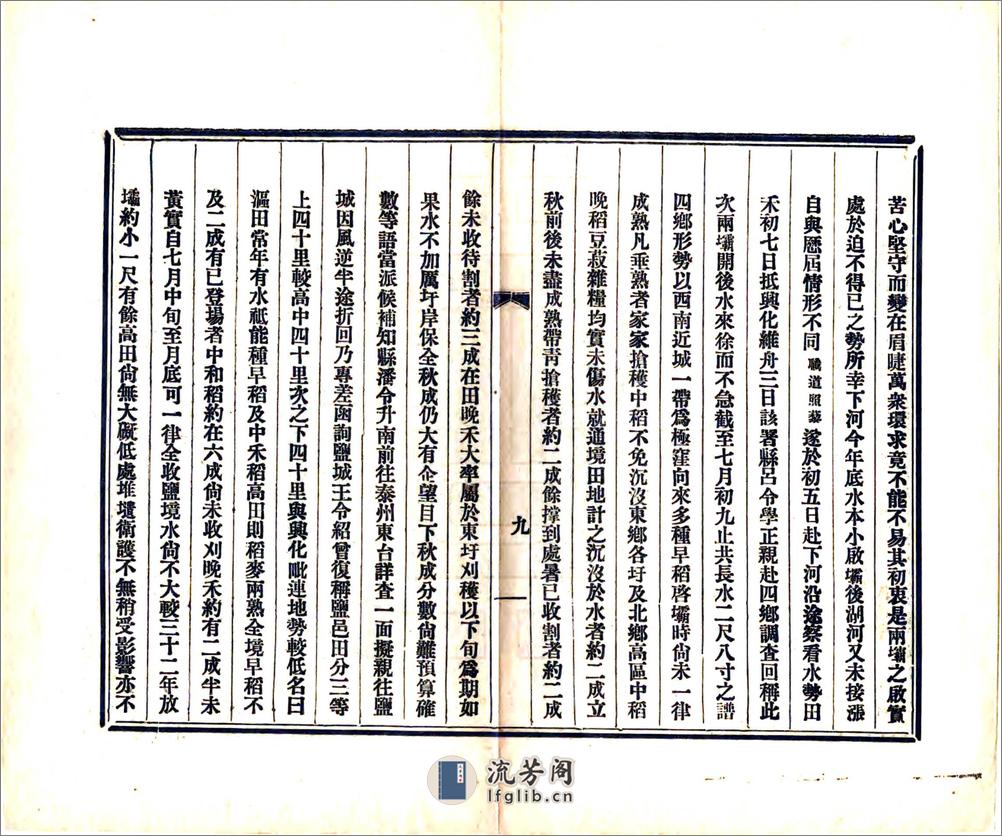 苦心堅守而變在眉睫萬衆環求竟不能不易其初衷是兩壩之啟實
處於迫不得已之勢所幸下河今年底水本小啟壩後湖河又未接漲
自與歷屆情形不同職道照藜遂於初五日赴下河沿途察看水勢田
禾初七日抵興化維舟三日該署縣呂令學正親赴四鄉調查回稱此
次兩壩開後水來徐而不急截至七月初九止共長水二尺八寸之譜
四鄉形勢以西南近城一帶爲極窪向來多種早稻啓壩時尙未一律
成熟凡垂熟者家家搶穫中稻不免沉沒東鄉各圩及北鄉高區中稻
晚稻豆菽雜糧均實未傷水就通境田地計之沉沒於水者約二成立
秋前後未盡成熟帶青搶穫者約二成餘撑到處暑已收割者約二成
九
餘未收待割者約三成在田晚禾大率屬於東圩刈穫以下旬爲期如
果水不加厲圩岸保全秋成仍大有企望目下秋成分數尙難預算確
數等語當派候補知縣潘令升南前往泰州東台詳查一面擬親往鹽
城因風逆半途折回乃專差函詢鹽城王令紹曾復稱鹽邑田分三等
上四十里較高中四十里次之下四十里與興化毗連地勢較低名曰
漚田當年有水祗能種早稻及中禾稻高田則稻麥兩熟全境早稻不
及二成有已登場者中和稻約在六成尙未收刈晚禾約有二成半未
黃實自七月中旬至月底可一律全收鹽境水尙不大較三十二年放
壩約小一尺有餘高田尙無大礙低處堆壝衛護不無稍受影響亦不
流芳阁
lfglib.cn